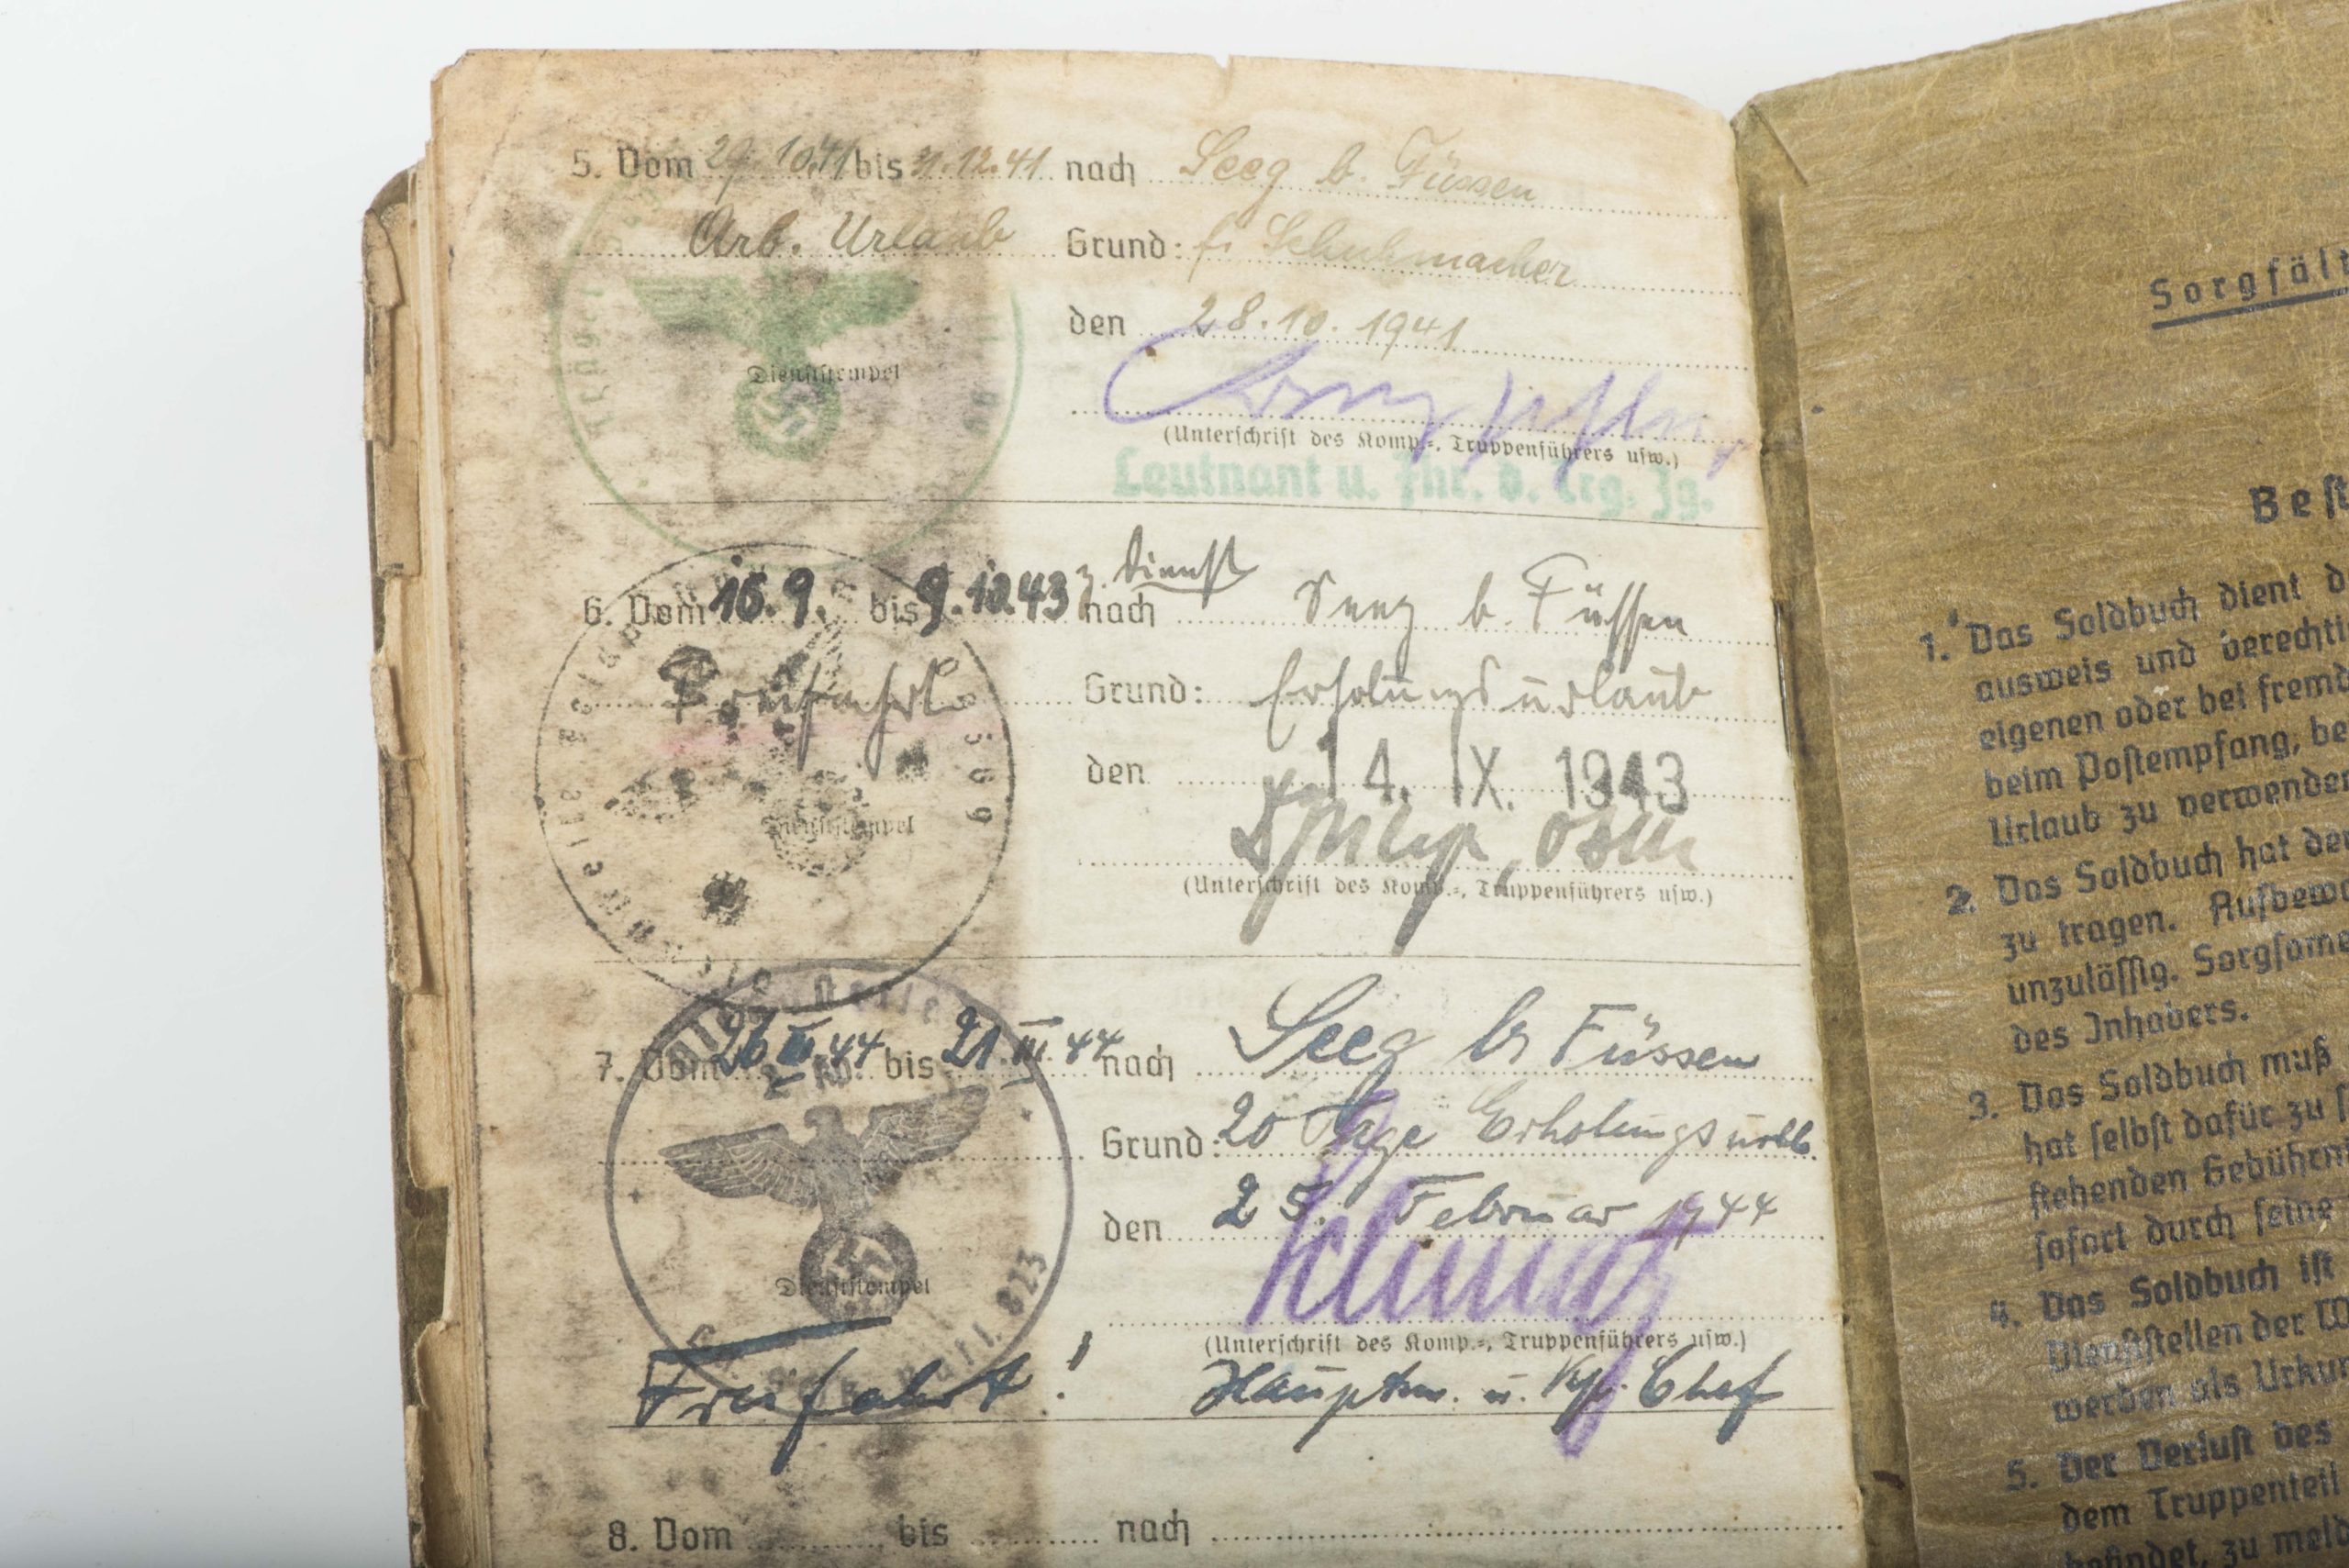 5. Vom 29.10.41 bis 31.12.41 nach Seeg b. Füssen
Arb. Urlaub Grund: f. Schuhmacher
den 28.10.1941
Dienststempel
(Unterschrift des Komp.-, Truppenführers usw.)
Leutnant u. Fhr. d. Erg. Jg.
z. Dienst
6. Vom 16.9. bis 9.10.43 nach Seeg b. Füssen
Freifahrt Grund: Erholungsurlaub
den 14. IX. 1943
Dienststempel
(Unterschrift des Komp.-, Truppenführers usw.)
7. Vom 26 44 bis 21. III. 44 nach Seeg b. Füssen
Grund: 20 Tage Erholungsurlb
den 25. Februar 1944
Dienststempel
823
(Unterschrift des Komp.-, Truppenführers usw.)
Freifahrt! Hauptm. u. Kp. Chef
8. Vom bis nach
Sorgfält
Best
1. Das Soldbuch dient d
ausweis und berechti
eigenen oder bei fremd
beim Postempfang, be
Urlaub zu verwenden
2. Das Soldbuch hat der
zu tragen. Aufbewa
unzulässig. Sorgsame
des Inhabers.
3. Das Soldbuch muß
hat selbst dafür zu s
stehenden Gebührn
sofort durch seine
4. Das Soldbuch ist
Dienststellen der W
werden als Urku
5. Der Verlust des
dem Truppenteil
befindet, zu meld